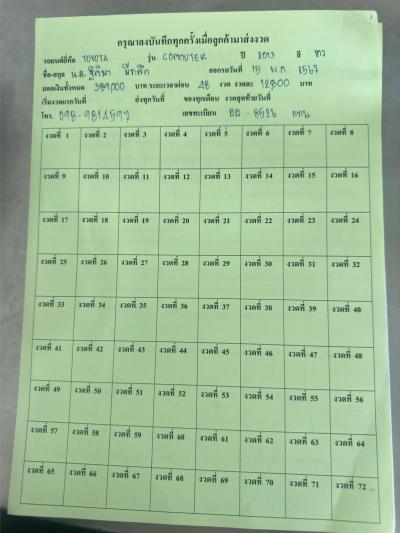 กรุณาลงบันทึกทุกครั้งเมื่อลูกค้ามาส่งงวด
รถยนต์ยี่ห้อ TOYOTA รุ่น COMMUTER ปี 2013 สี ขาว
ชื่อ-สกุล น.ส. ออกรถวันที่ 15 พ.ค. 2567
ยอดเงินทั้งหมด 389,000 บาท ระยะเวลาผ่อน 48 งวด งวดละ 12,800 บาท
เริ่มงวดแรกวันที่ ส่งทุกวันที่ ของทุกเดือน งวดสุดท้ายวันที่
โทร. 098-9814597 เลขทะเบียน 8526 กทม
งวดที่ 1 งวดที่ 2 งวดที่ 3 งวดที่ 4 งวดที่ 5 งวดที่ 6 งวดที่ 7 งวดที่ 8
งวดที่ 9 งวดที่ 10 งวดที่ 11 งวดที่ 12 งวดที่ 13 งวดที่ 14 งวดที่ 15 งวดที่ 16
งวดที่ 17 งวดที่ 18 งวดที่ 19 งวดที่ 20 งวดที่ 21 งวดที่ 22 งวดที่ 23 งวดที่ 24
งวดที่ 25 งวดที่ 26 งวดที่ 27 งวดที่ 28 งวดที่ 29 งวดที่ 30 งวดที่ 31 งวดที่ 32
งวดที่ 33 งวดที่ 34 งวดที่ 35 งวดที่ 36 งวดที่ 37 งวดที่ 38 งวดที่ 39 งวดที่ 40
งวดที่ 41 งวดที่ 42 งวดที่ 43 งวดที่ 44 งวดที่ 45 งวดที่ 46 งวดที่ 47 งวดที่ 48
งวดที่ 49 งวดที่ 50 งวดที่ 51 งวดที่ 52 งวดที่ 53 งวดที่ 54 งวดที่ 55 งวดที่ 56
งวดที่ 57 งวดที่ 58 งวดที่ 59 งวดที่ 60 งวดที่ 61 งวดที่ 62 งวดที่ 63 งวดที่ 64
งวดที่ 65 งวดที่ 66 งวดที่ 67 งวดที่ 68 งวดที่ 69 งวดที่ 70 งวดที่ 71 งวดที่ 72